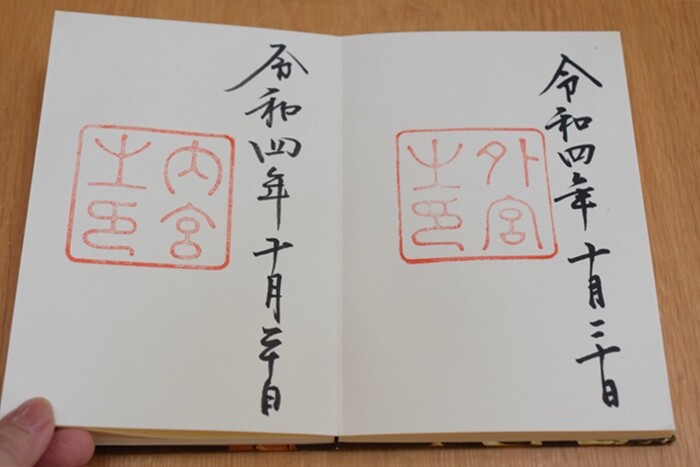 令和四年十月二十日
外宮
之印
令和四年十月二十日
内宮
之印